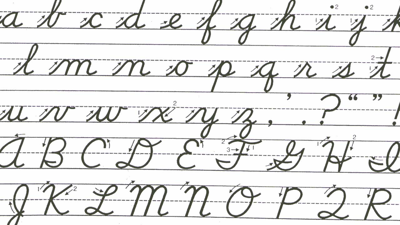 a b c d e f g h i j k
l m n o p q r s t
u v w x y z , ' . ? “ ” !
A B C D E F G H I
J K L M N O P Q R